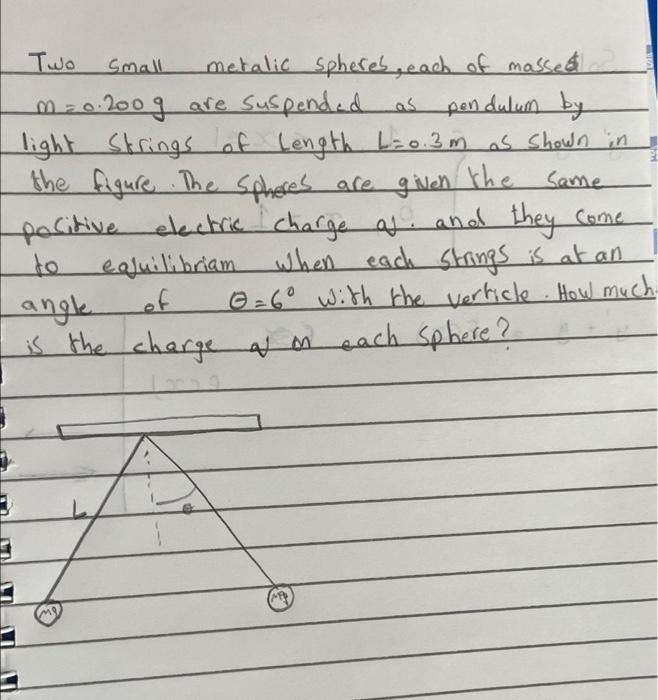 Two small metalic spheres, each of masses
m=0.200g are suspended as pendulum by
light strings of Length L=0.3m as shown in
the figure. The spheres are given the same
positive electric charge q. and they come
to equilibriam when each strings is at an
angle of θ=6° with the verticle. How much
is the charge q on each sphere?
L
θ